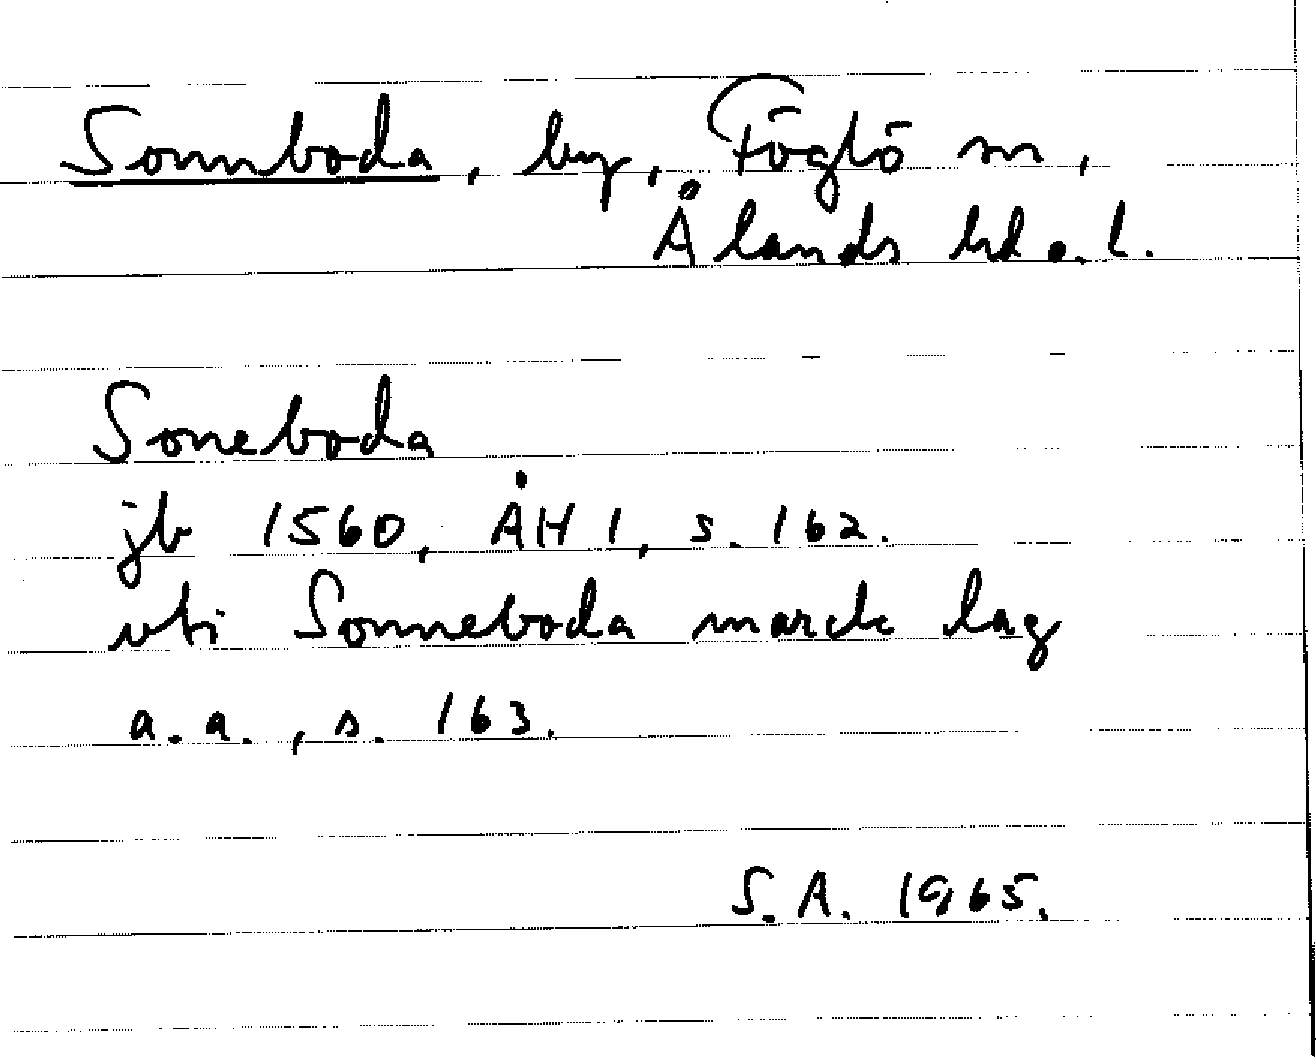 Sonnboda, by, Föglö sn,
Ålands hd o. l.
Soneboda
jb 1560, ÅH 1, s. 162.
vti Sonneboda marck lag
a.a., s. 163.
S.A. 1965.